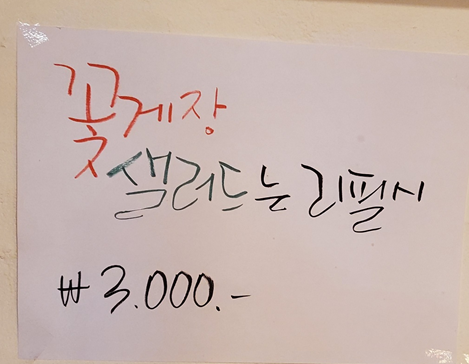 꽃게장
샐러드는 리필시
₩3.000.-